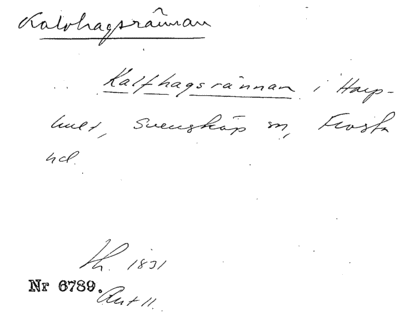 Kalvhagsrännan
Kalfhagsrännan i Harp-
hult, Svensköp sn, Frosta
hd.
Lh. 1831
Nr 6789. Akt 11.